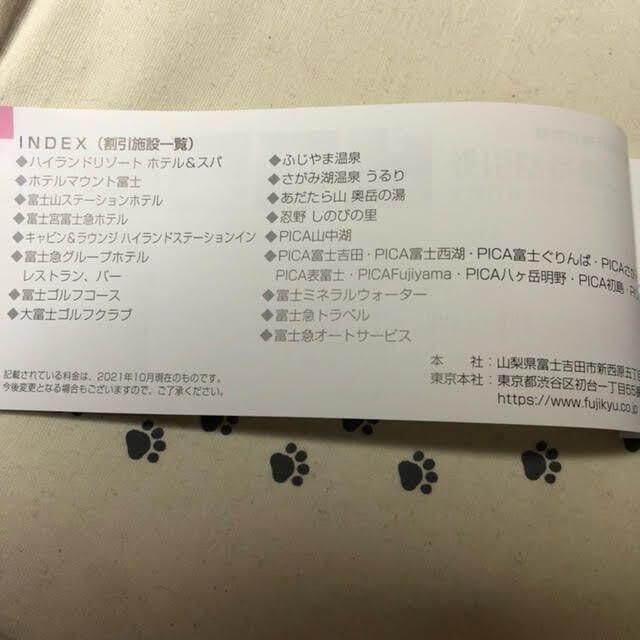 INDEX（割引施設一覧）
◆ハイランドリゾート ホテル＆スパ
◆ホテルマウント富士
◆富士山ステーションホテル
◆富士宮富士急ホテル
◆キャビン＆ラウンジ ハイランドステーションイン
◆富士急グループホテル
レストラン、バー
◆富士ゴルフコース
◆大富士ゴルフクラブ
◆ふじやま温泉
◆さがみ湖温泉 うるり
◆あだたら山 奥岳の湯
◆忍野 しのびの里
◆PICA山中湖
◆PICA富士吉田・PICA富士西湖・PICA富士ぐりんぱ・PICAさが
PICA表富士・PICAFujiyama・PICA八ヶ岳明野・PICA初島・
◆富士ミネラルウォーター
◆富士急トラベル
◆富士急オートサービス
記載されている料金は、2021年10月現在のものです。
今後変更となる場合もございますので、ご了承ください。
本 社：山梨県富士吉田市新西原五丁目
東京本社：東京都渋谷区初台一丁目55番
https://www.fujikyu.co.jp